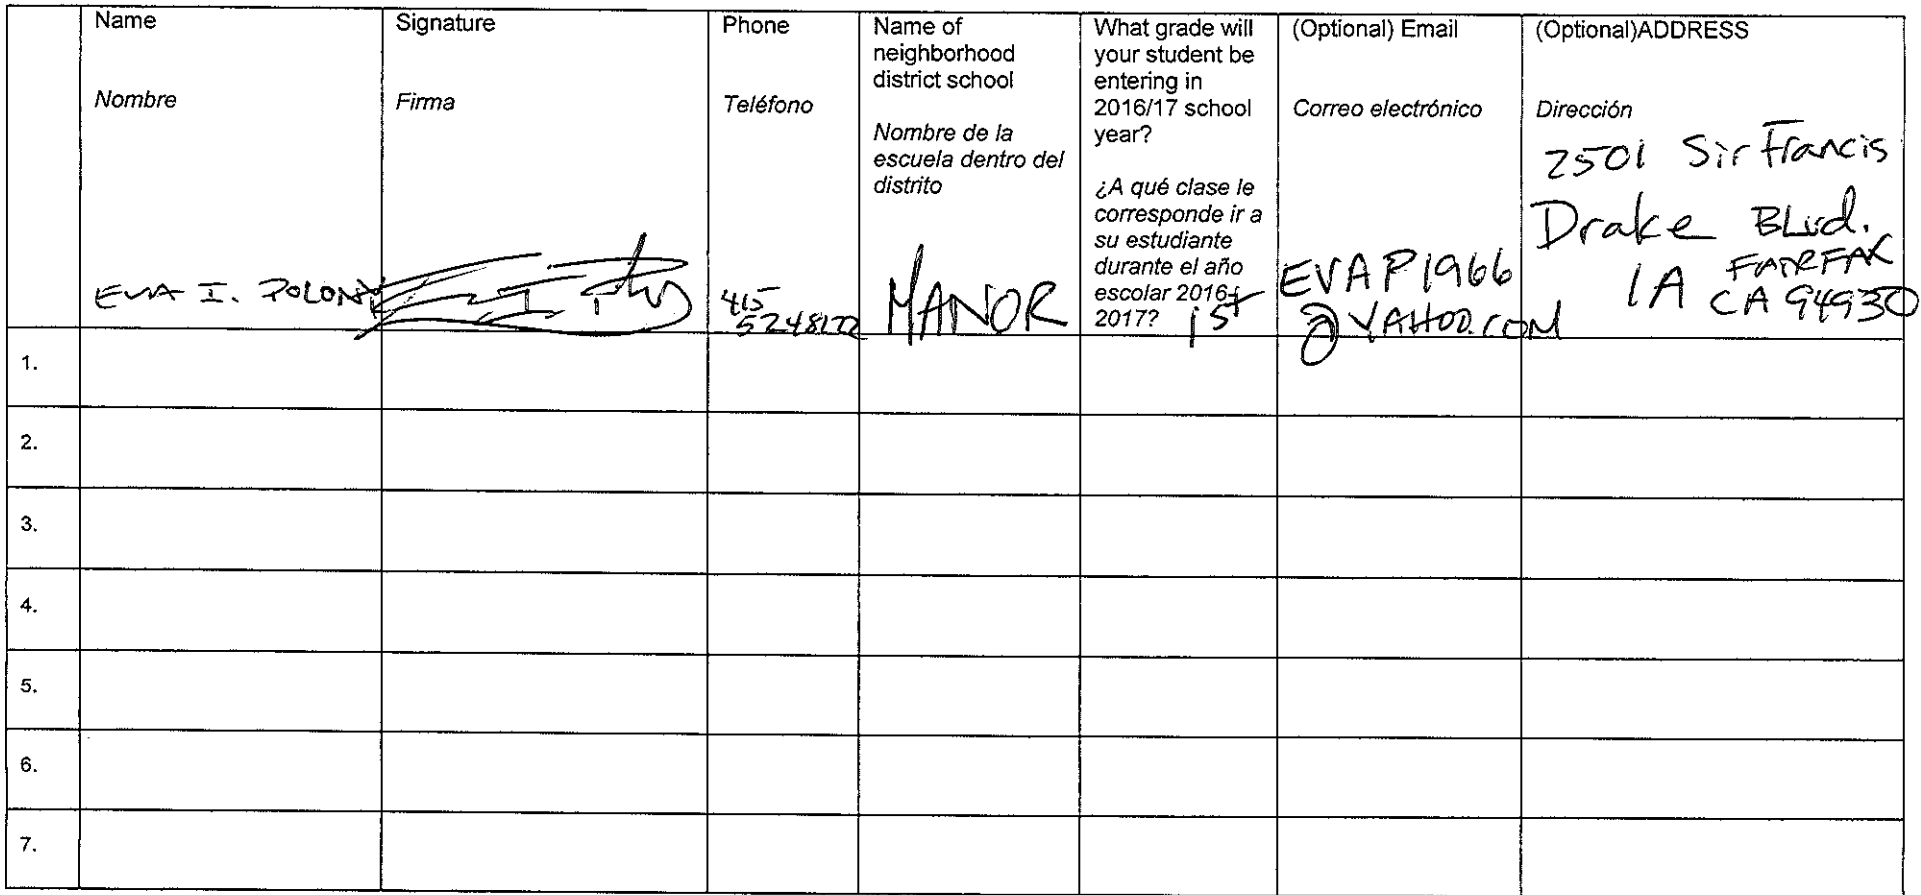 Name
Nombre
Signature
Firma
Phone
Teléfono
Name of
neighborhood
district school
Nombre de la
escuela dentro del
distrito
What grade will
your student be
entering in
2016/17 school
year?
¿A qué clase le
corresponde ir a
su estudiante
durante el año
escolar 2016-
2017?
(Optional) Email
Correo electrónico
(Optional)ADDRESS
Dirección
EVA I. POLONY
415
5248172
MANOR
1st
EVAP1966
@YAHOO.COM
2501 Sir Francis
Drake BLvd.
1A FAIRFAX
CA 94930
1.
2.
3.
4.
5.
6.
7.